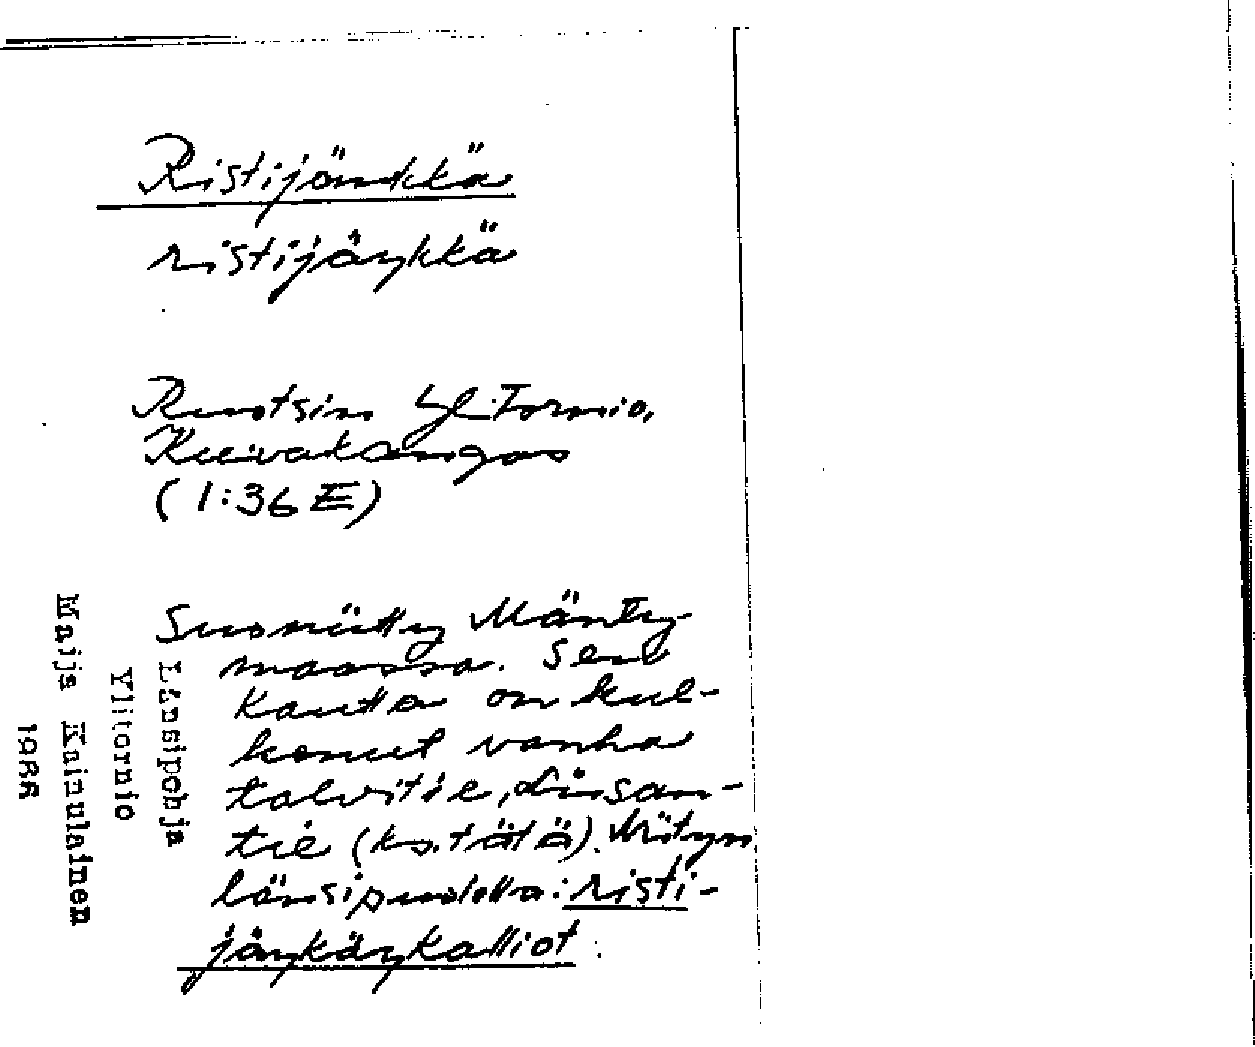 Ristijänkkä
ristijäŋkkä
Ruotsin Yli Tornio,
Kuivakangas
(1:36 E)
Suoniitty Mänty-
maassa. Sen
kautta on kul-
kenut vanha
talvitie, Liisan-
tie (ks. tätä). Niityn
länsipuolella: risti-
jäŋkäŋkalliot.
Länsipohja
Ylitornio
Maija Kainulainen
1986